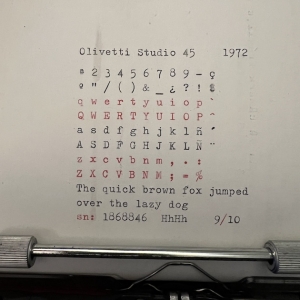 Olivetti Studio 45 1972
ª 2 3 4 5 6 7 8 9 - ç
º " / ( ) & _ ¿ ? !
q w e r t y u i o p `
Q W E R T Y U I O P ^
a s d f g h j k l ñ ´
A S D F G H J K L Ñ ¨
z x c v b n m , . :
Z X C V B N M ; = %
The quick brown fox jumped
over the lazy dog
sn: 1868846 HhHh 9/10